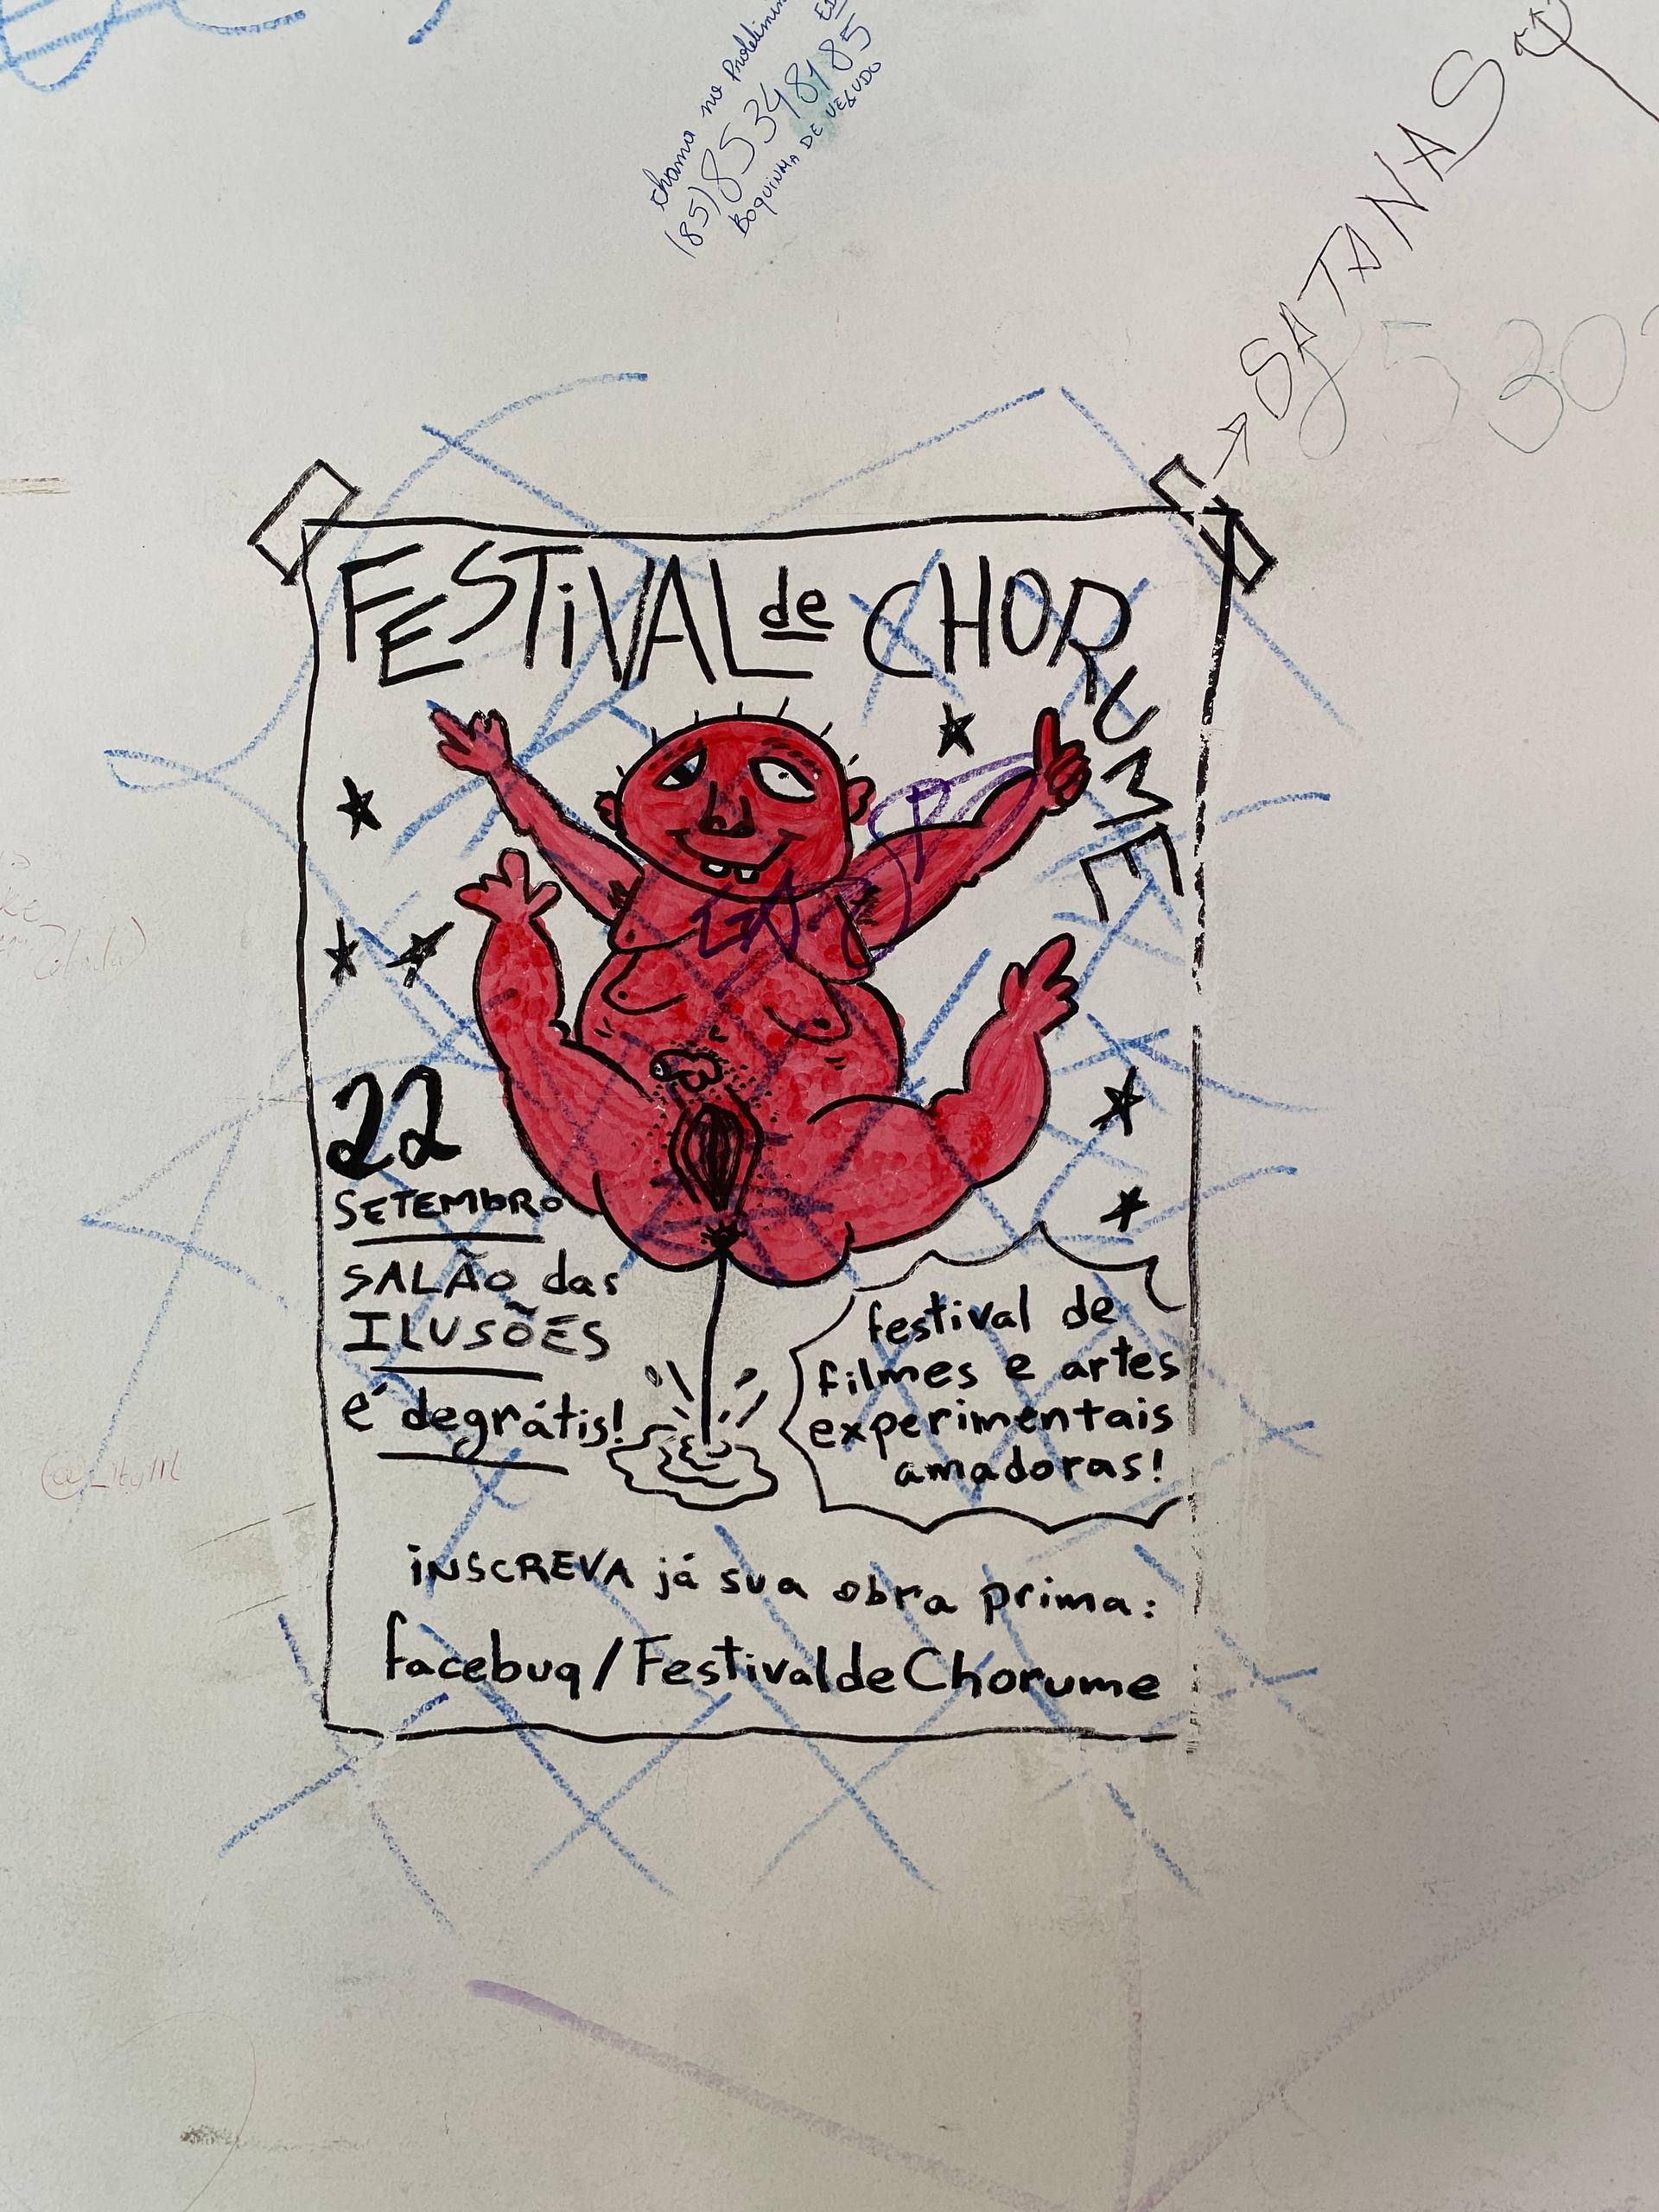 chama no
(85) 85348185
BOQUINHA DE VELUDO
SATANAS
FESTIVAL de CHORUME
22
SETEMBRO
SALÃO das
ILUSÕES
é degrátis!
festival de
filmes e artes
experimentais
amadoras!
INSCREVA já sua obra prima:
facebuq/FestivaldeChorume